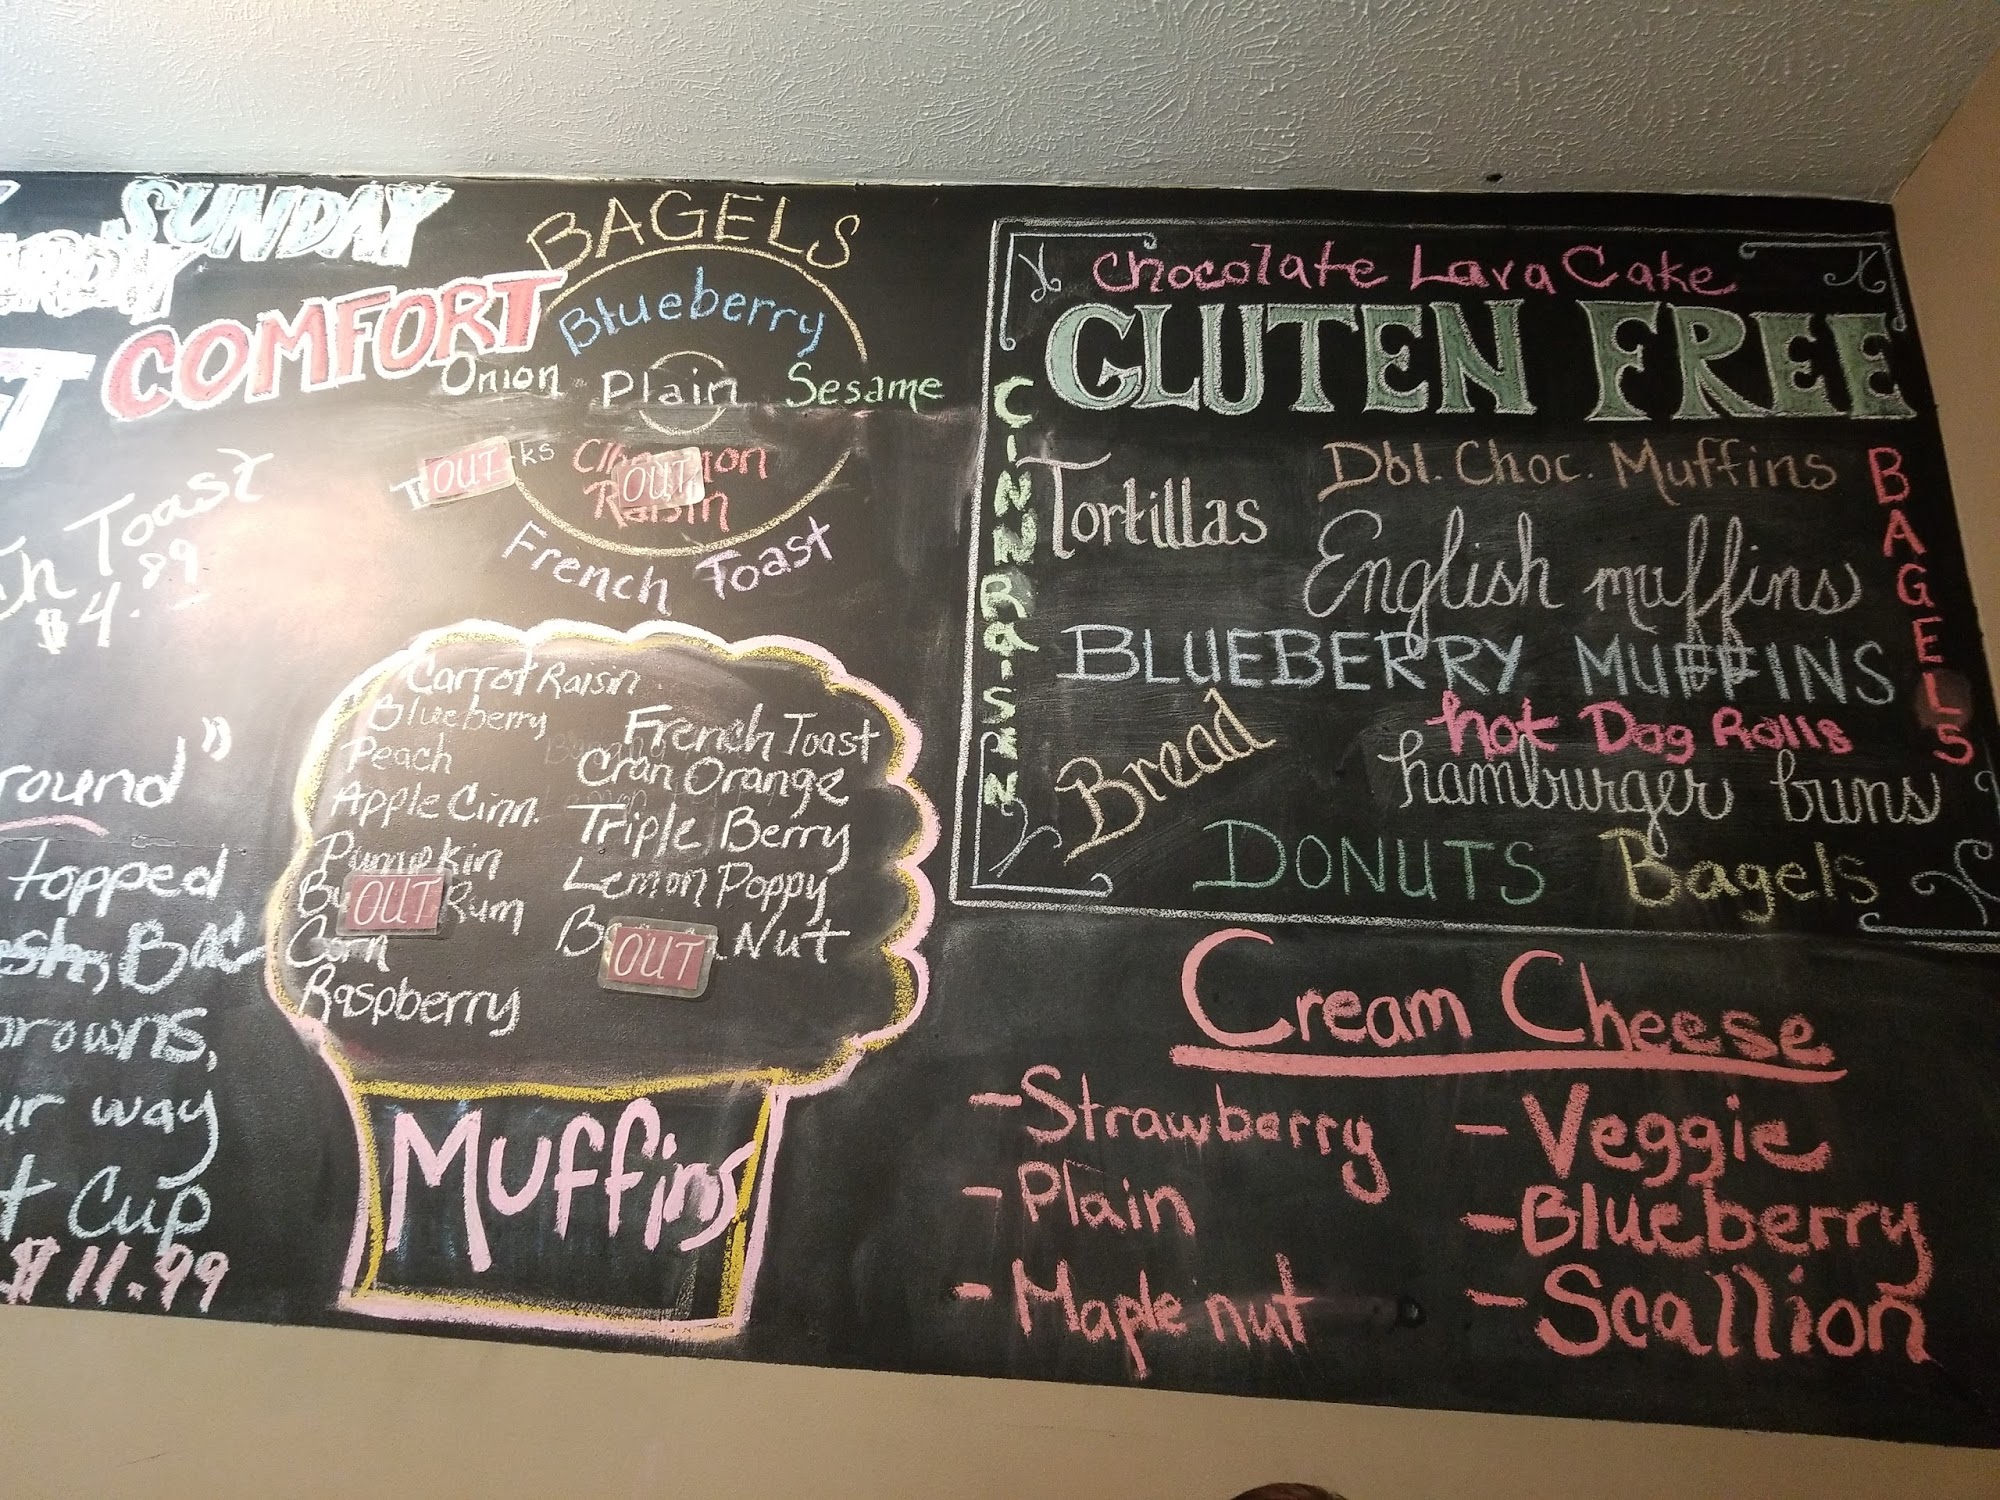 SUNDAY
COMFORT
Toast
$4.89
round"
topped
Bac
browns,
way
Cup
$11.99
BAGELS
Blueberry
Onion Plain Sesame
OUT ks OUT
Raisin
French Toast
Carrot Raisin
Blueberry
Peach
Apple Cinn.
Pumpkin
OUT Rum
Corn
Raspberry
French Toast
Cran Orange
Triple Berry
Lemon Poppy
OUT Nut
Muffins
Chocolate Lava Cake
GLUTEN FREE
CINN RAISEN
BAGELS
Tortillas
Dbl. Choc. Muffins
English muffins
BLUEBERRY MUFFINS
Bread
hot Dog Rolls
hamburger buns
DONUTS Bagels
Cream Cheese
- Strawberry
- Plain
- Maple nut
- Veggie
- Blueberry
- Scallion